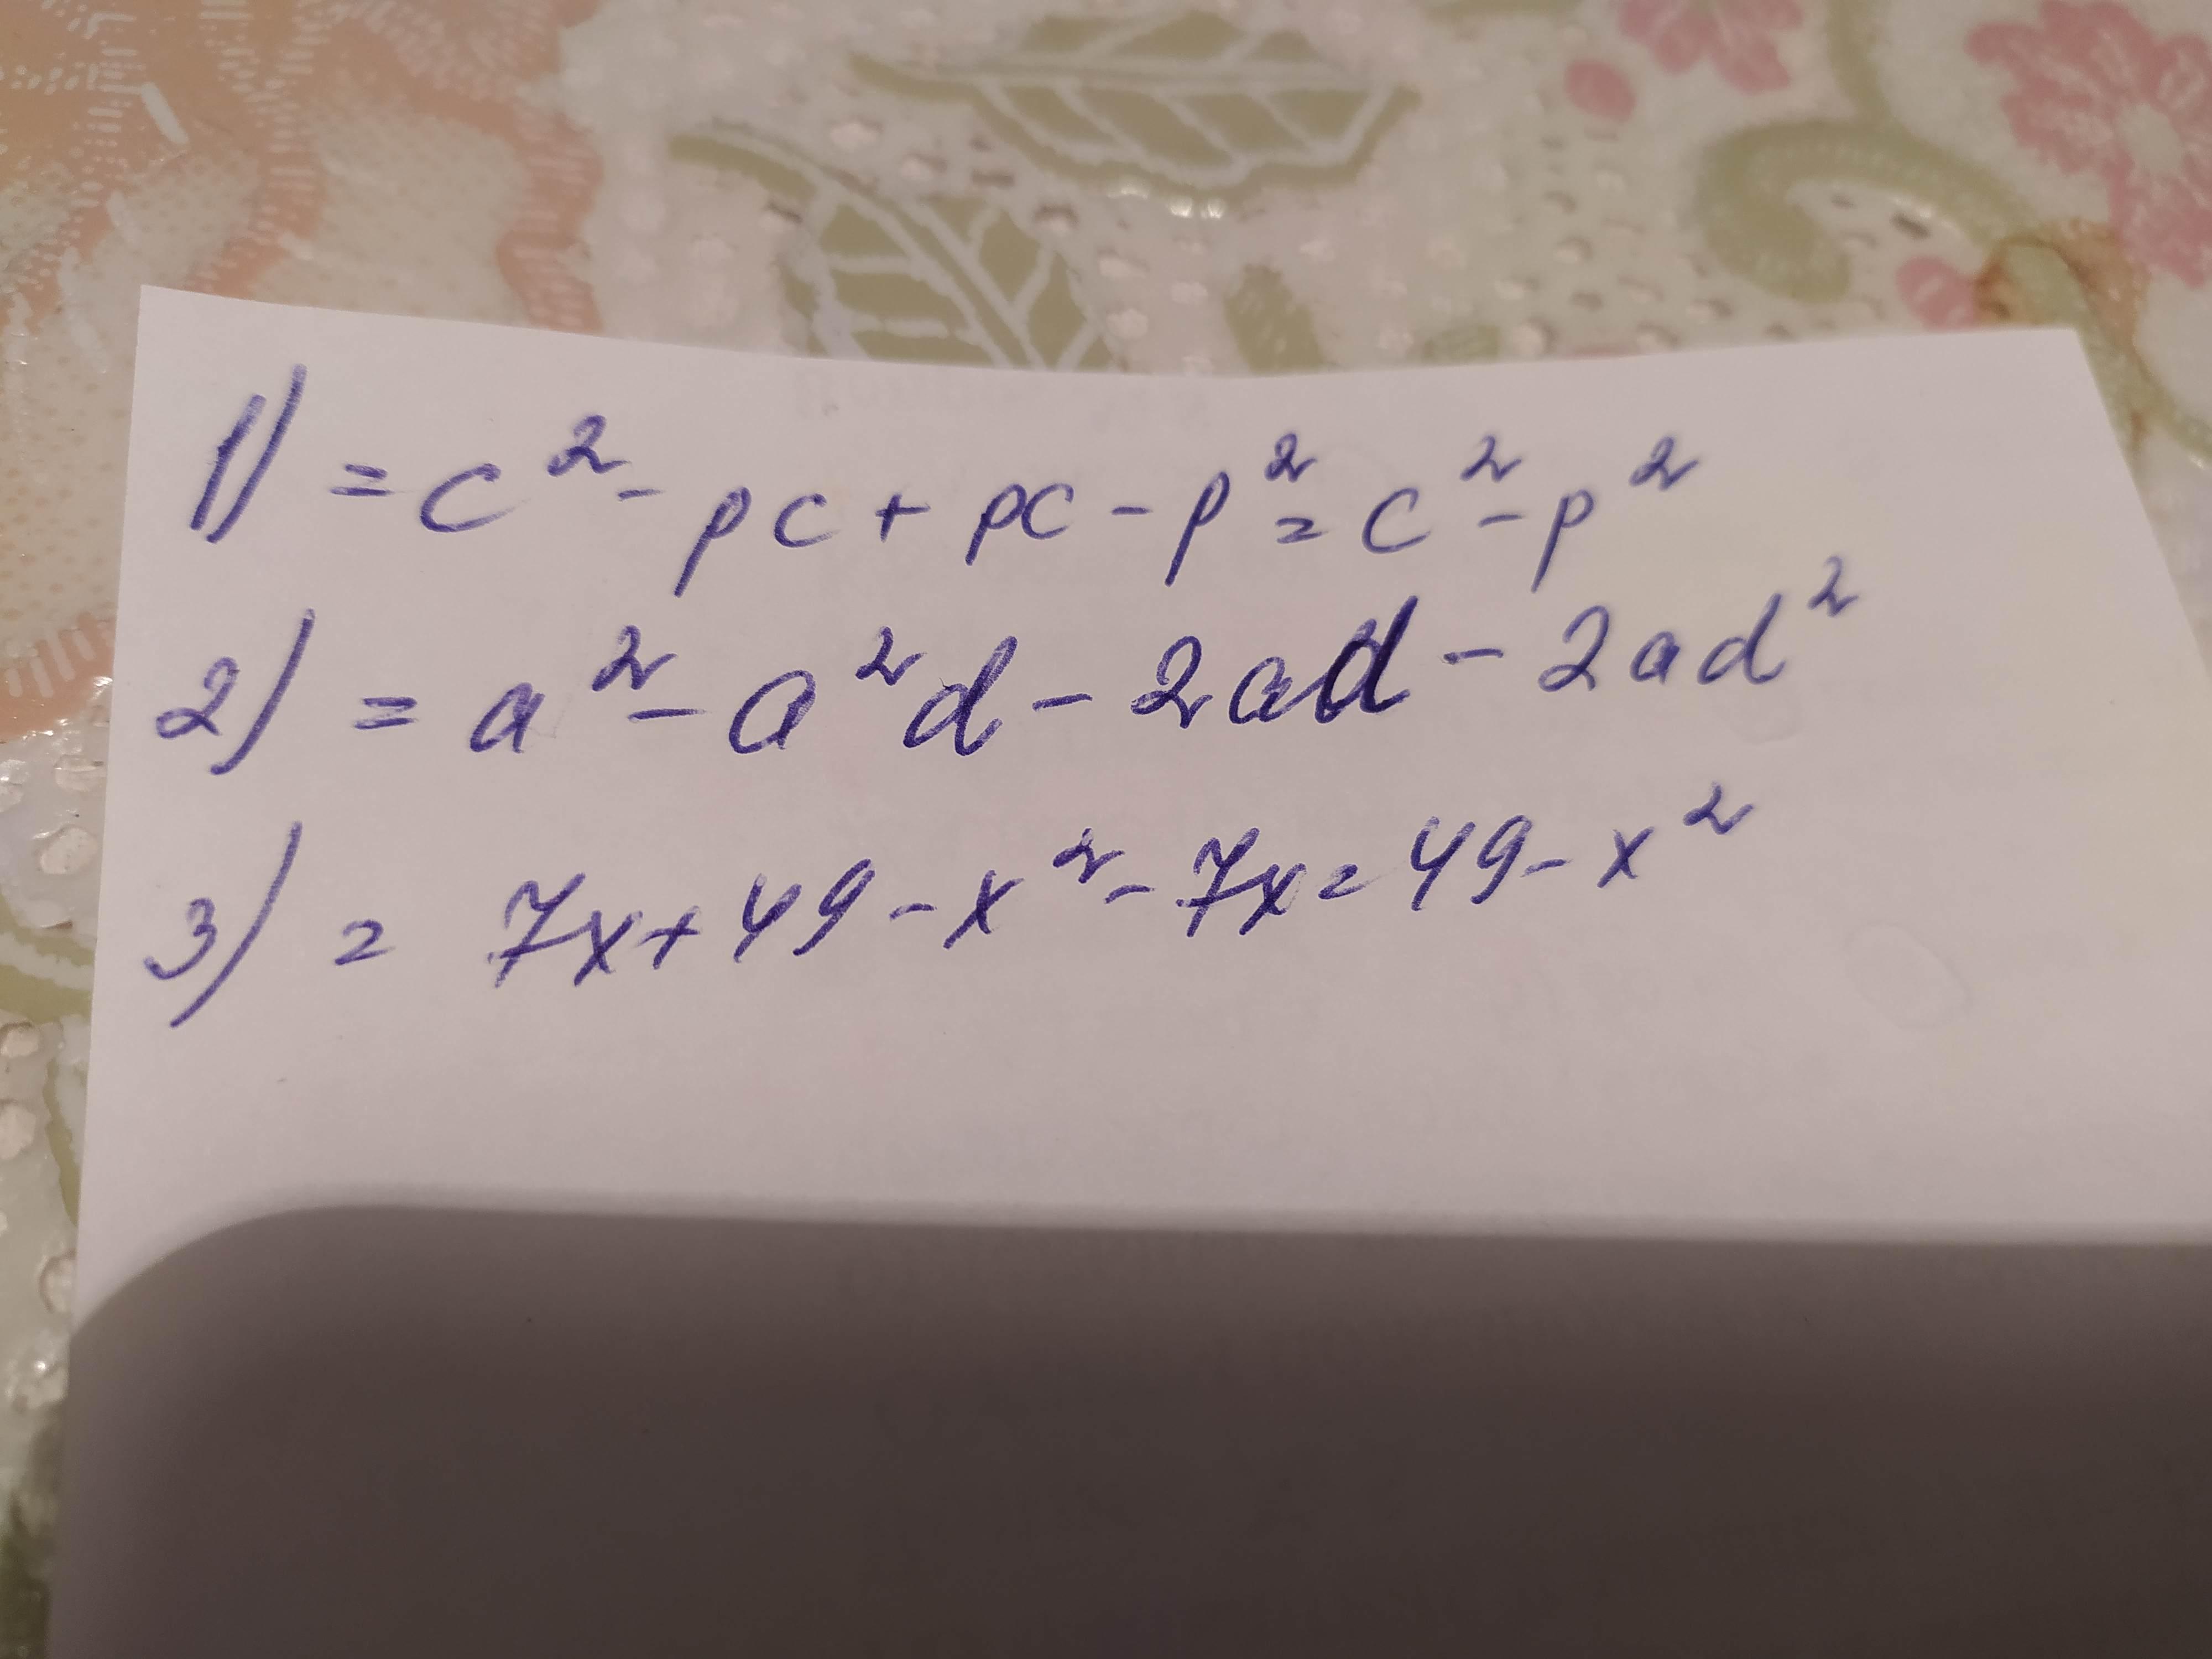 1) = c² - pc + pc - p² = c² - p²
2) = a² - a²d - 2ad - 2ad²
3) = 7x + 49 - x² - 7x = 49 - x²